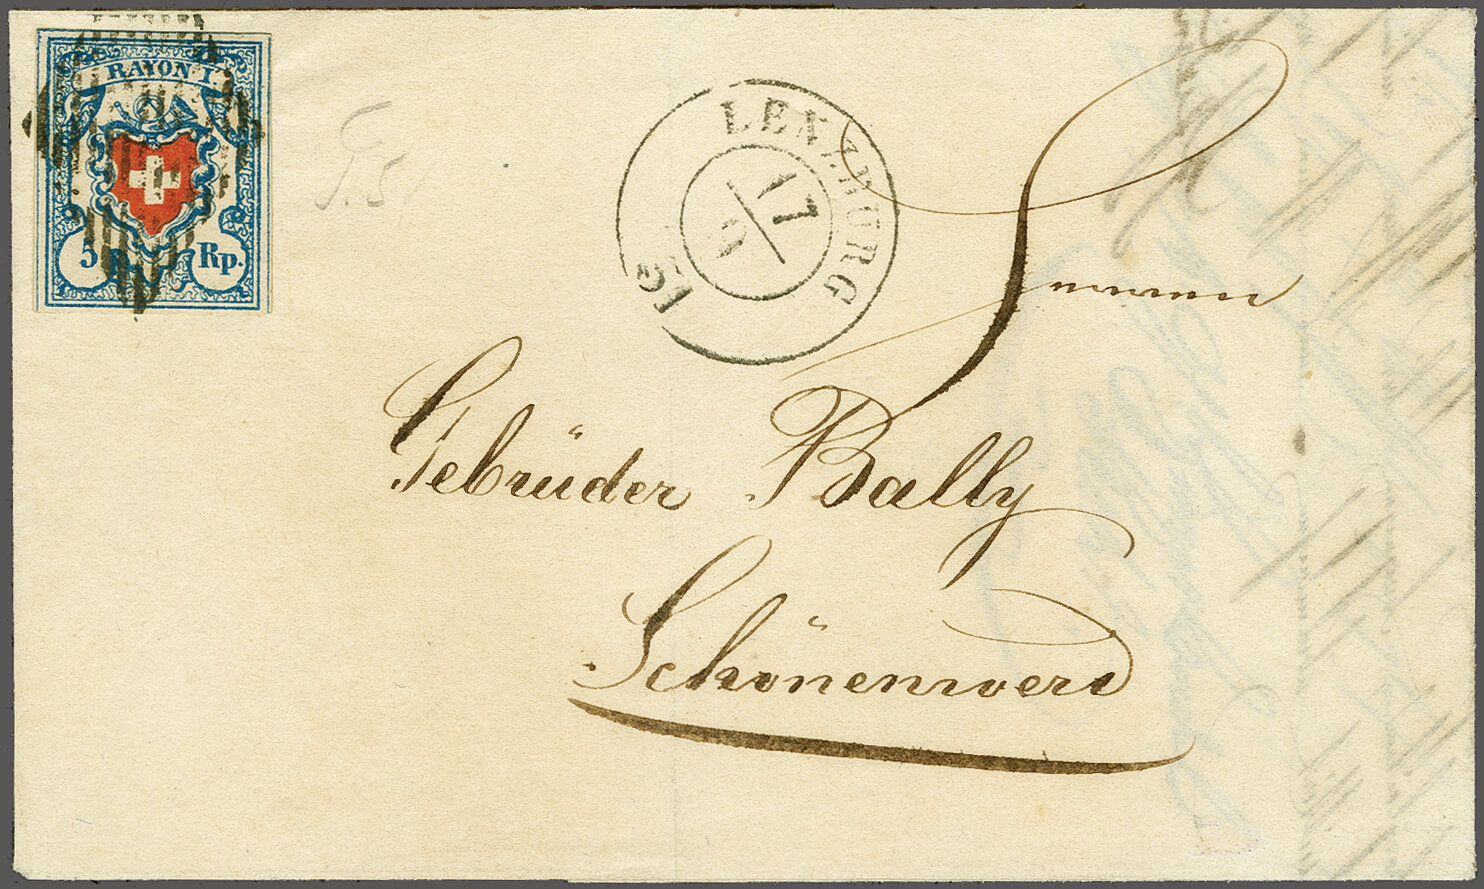 RAYON I.
5 Rp.
LENZBURG
17
9
51
Gebrüder Bally
Schönenwerd